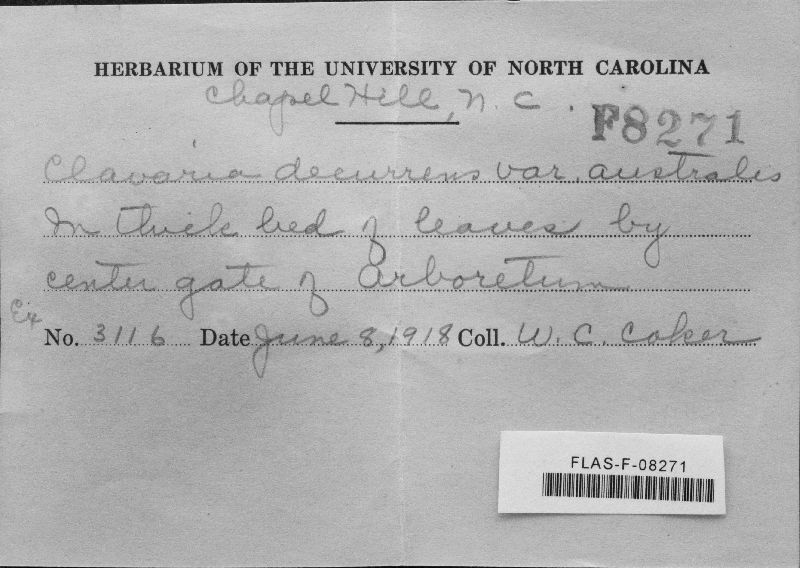 HERBARIUM OF THE UNIVERSITY OF NORTH CAROLINA
Chapel Hill, N. C.
F8271
Clavaria decurrens var. australis
In thick bed of leaves by
center gate of Arboretum
Ex
No. 3116 Date June 8, 1918 Coll. W. C. Coker
FLAS-F-08271